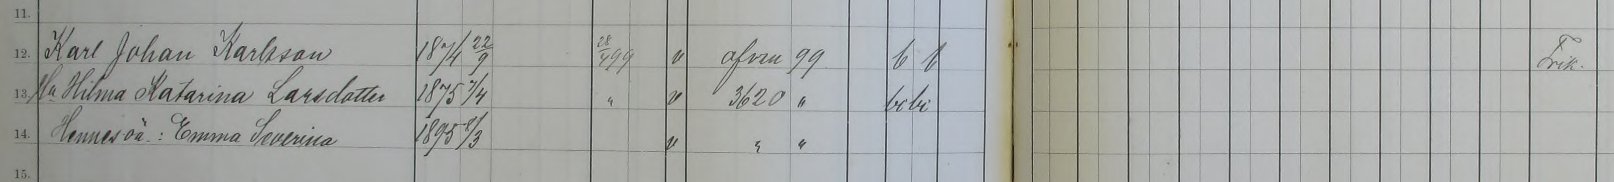 11.
12. Karl Johan Karlsson 1874 22/9 28/4 99 v ofvan 99 b b Frik.
13. Hu Hilma Katarina Larsdotter 1875 7/4 " v 3620 " bcbc
14. Hennes oä.: Emma Severina 1895 8/3 v " "
15.